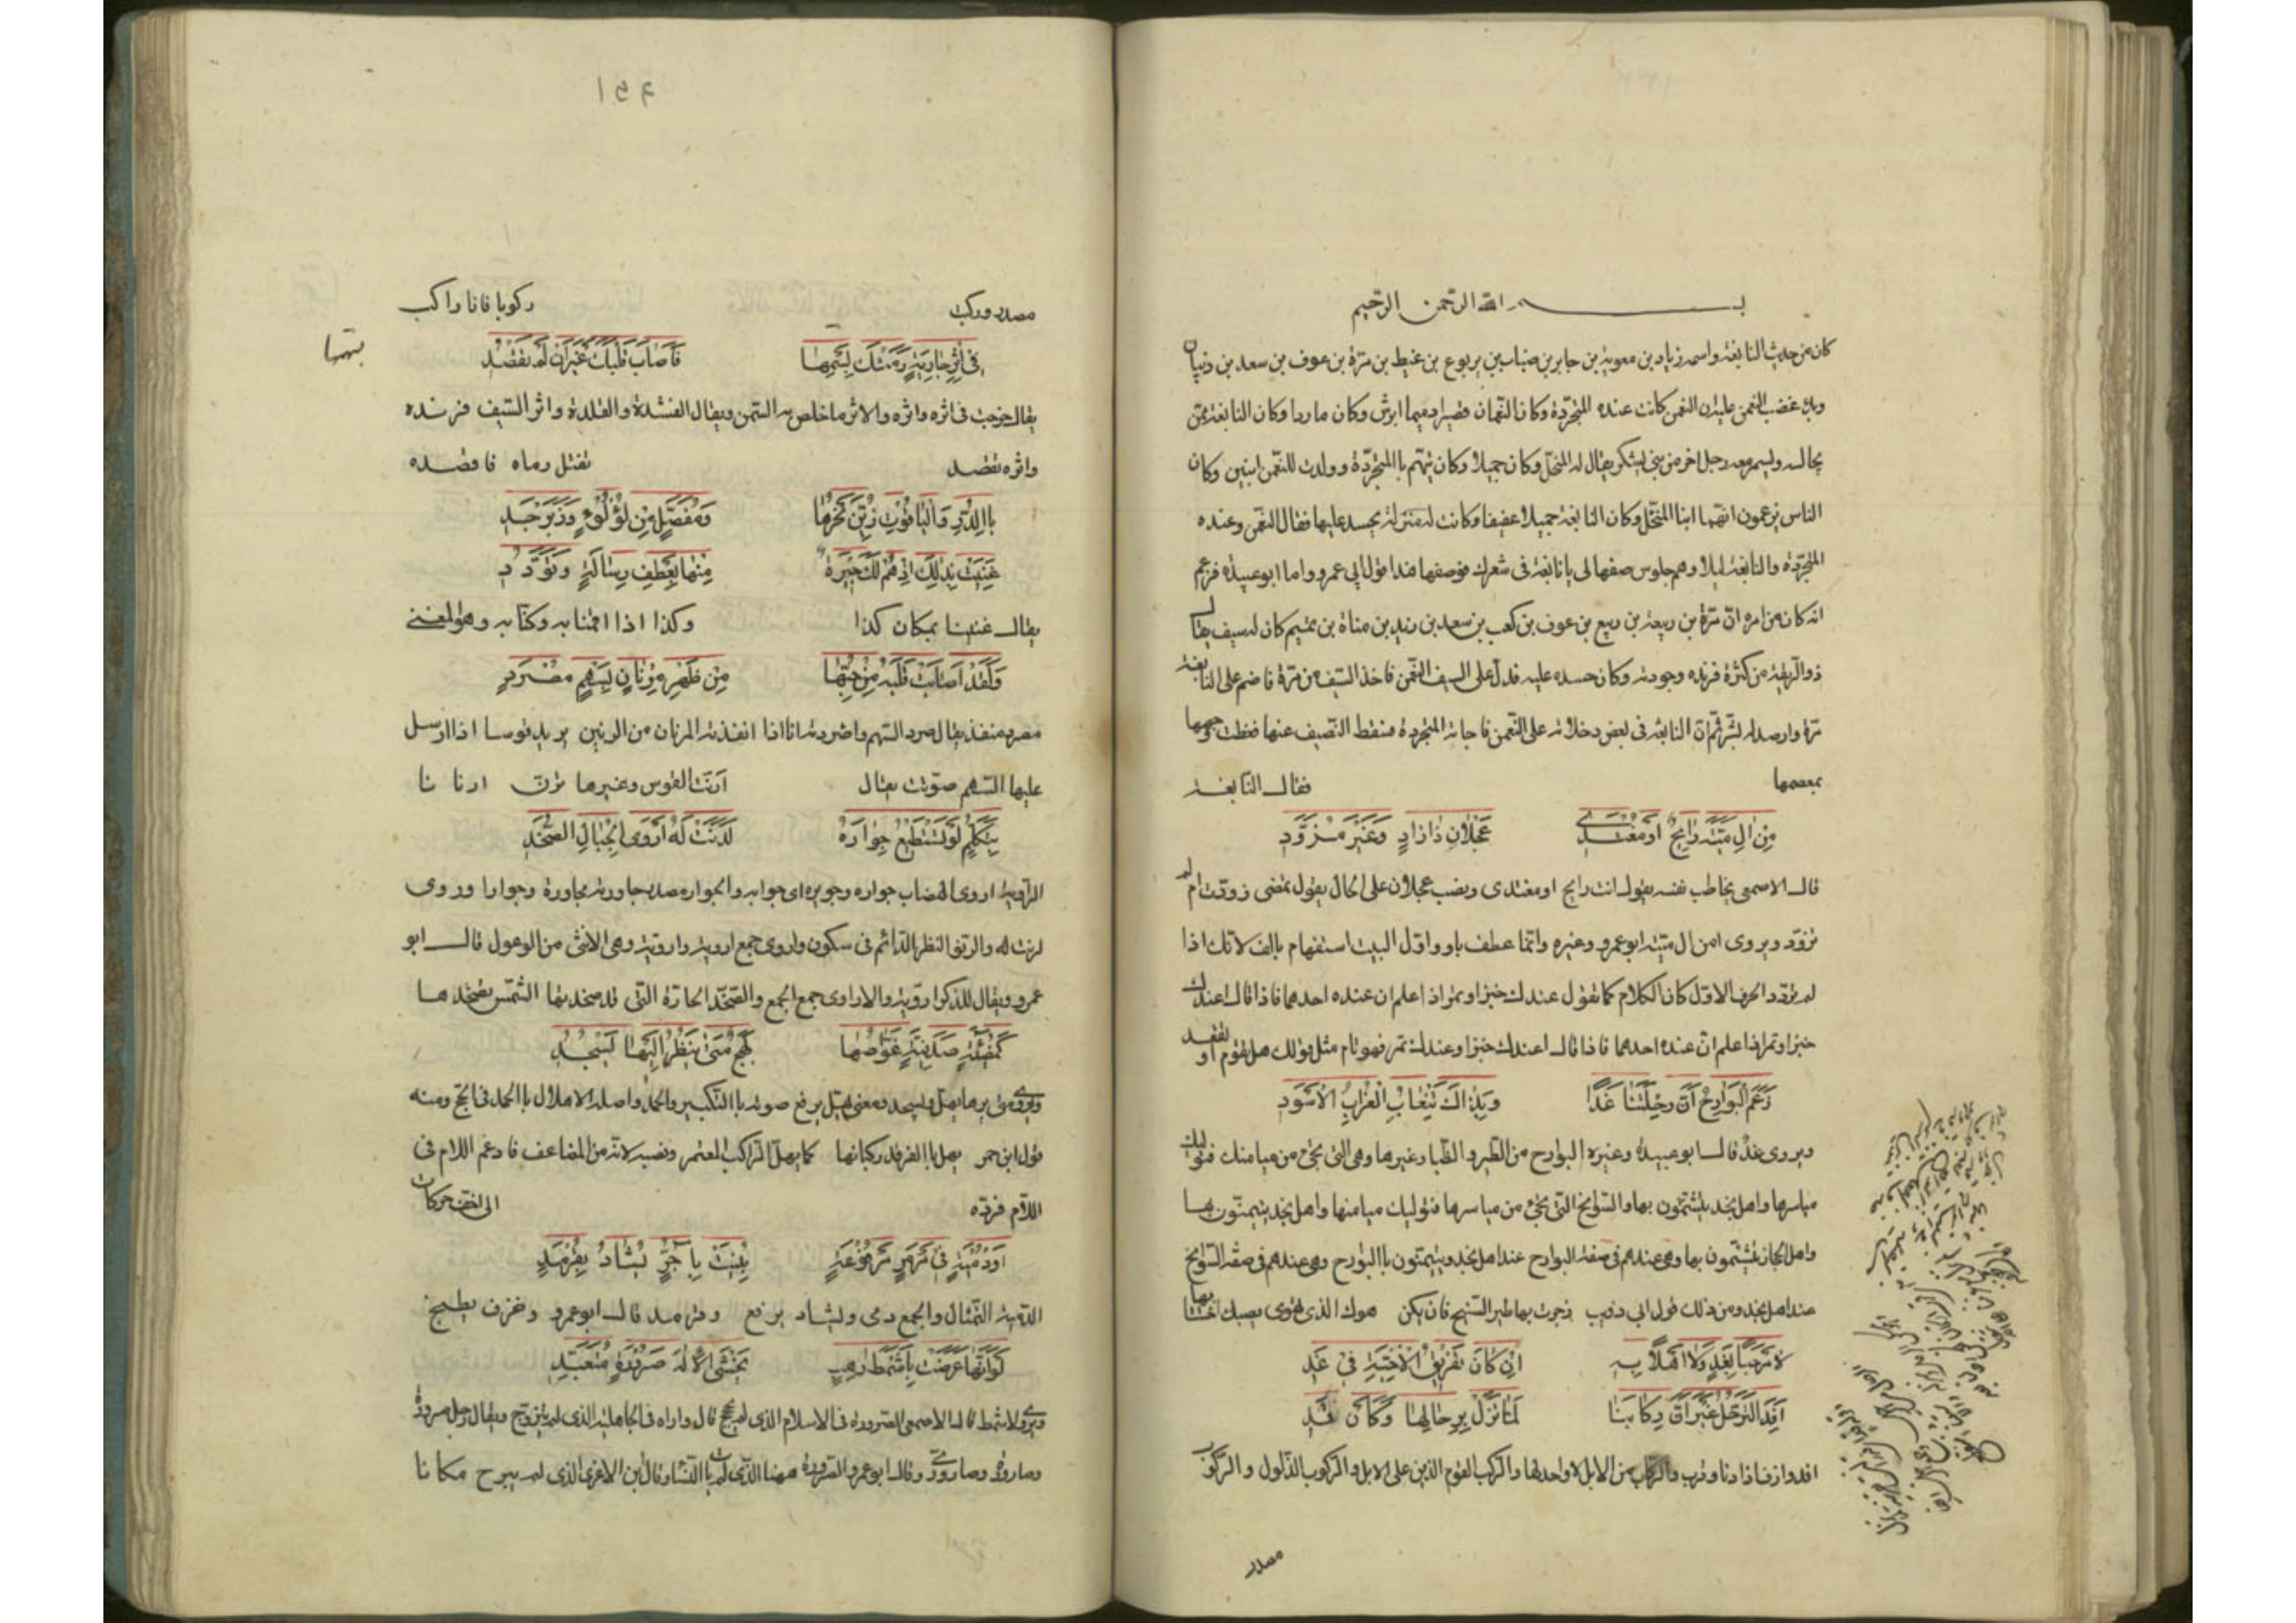 بسـم الله الرحمن الرحيم
كان من حديث النابغة واسمه زياد بن معوية بن جابر بن ضباب بن يربوع بن غيظ بن مرة بن عوف بن سعد بن ذبيان
غضب النعمن عليه ان النعمن كانت عنده المتجردة وكان النعمان قصيرا دميما ابرش وكان ماردا وكان النابغة ممن
يجالسه ويسمر معه رجل اخر من بني يشكر يقال له المنخل وكان جميلا وكان يتهم باالمتجردة وولدت للنعمن ابنين وكان
الناس يزعمون انهما ابنا المنخل وكان النابغة جميلا عفيفا وكانت له منزلة يحسد عليها فقال النعمن وعنده
المتجردة والنابغة ليلا وهم جلوس صفها لي يا نابغة في شعرك فوصفها هذا قول ابي عمرو واما ابو عبيدة فزعم
انه كان من امره ان مرة بن ربيعة بن ربيع بن عوف بن كعب بن سعد بن زيد بن مناة بن تميم كان له سيف يقال
ذو الريقة من كثرة فرنده وجودته وكان حسده عليه فدل على السيف النعمن فاخذ السيف من مرة فاضم على النابغة
مرة وارصد له بشر ثم ان النابغة في بعض دخلاته على النعمن فاجاته المتجردة فسقط النصيف عنها فغطت وجهها
بمعصمها فقال النابغة
مِن الِ مَيَّةَ رَايِحٌ اَوْ مُغْتَدِي عَجْلَانَ ذَا زَادٍ وَغَيْرَ مُزَوَّدِ
قال الاصمعي يخاطب نفسه يقول انت رايح او مغتدي ونصب عجلان على الحال يقول تمضي زودت ام لم
تزود ويروى امن ال مية ابو عمرو وغيره وانما عطف باو واول البيت استفهام باالف لانك اذا
لم تردد الحرف الاول كان الكلام كما تقول عندك خبز او تمر اذا علم ان عنده احدهما فاذا قال اعندك
خبز او تمر اذا علم ان عنده احدهما فاذا قال اعندك خبز او عندك تمر فهو ام مثل قولك هل تقوم او تقعد
زَعَمَ الْبَوَارِحُ اَنَّ رِحْلَتَنَا غَدًا وَبِذَاكَ تَنْعَابُ الْغُرَابِ الْاَسْوَدِ
ويروى غدٌ قال ابو عبيدة وغيره البوارح من الطير والظبا وغيرها وهي التي تجي من ميامنك فتوليك
مياسرها واهل نجد يتشئمون بها والسوانح التي تجي من مياسرها فتوليك ميامنها واهل نجد يتيمنون بها
واهل الحجاز يتشئمون بها وهي عندهم في صفة البوارح عند اهل نجد ويتيمنون باالبوارح وهي عندهم في صفة السوانح
عند اهل نجد ومن ذلك قول ابي ذويب زجرت بها طير السنيح فان يكن هواك الذي تهوى يصبك اجتنابها
لَا مَرْحَبًا بِغَدٍ وَلَا اَهْلًا بِهِ اِنْ كَانَ تَفْرِيقُ الْاَحِبَّةِ فِي غَدِ
اَفِدَ التَّرَحُّلُ غَيْرَ اَنَّ رِكَابَنَا لَمَّا تَزُلْ بِرِحَالِهَا وَكَاَنْ قَدِ
افد وازف اذا دنا وقرب والركاب من الابل لا واحد لها والركب القوم الذين على الابل والركوب الذلول والركوب
مصدر
١٥٤
مصدر وركب ركوبا فانا راكب
فِي اَثَرِ جَارِيَةٍ رَمَتْكَ بِسَهْمِهَا فَاَصَابَ قَلْبَكَ غَيْرَ اَنْ لَمْ تُقْصِدِ
بسهمها
يقال خرجت في اثره واثره والاثر ما خلص به السمن ويقال القشدة والقلدة واثر السيف فرنده
واثره تقصد تقتل رماه فاقصده
بِاالدُّرِّ وَالْيَاقُوتِ زُيِّنَ نَحْرُهَا وَمُفَصَّلٍ مِن لُؤْلُؤٍ وَزَبَرْجَدِ
غَنِيَتْ بِذَلِكَ اِذ هُمُ لَكَ جِيرَةٌ مِنْهَا بِعَطْفِ رِسَالَةٍ وَتَوَدُّدِ
يقال غنينا بمكان كذا وكذا اذا اقمنا به وكنا به وهو المغنى
وَلَقَدْ اَصَابَتْ قَلْبَهُ مِنْ حُبِّهَا مِنْ ظَهْرِ مِرْنَانٍ بِسَهْمٍ مُصْرَدِ
مصرد منفذ يقال صرد السهم واصردته انا اذا انفذته المرنان من الرنين يريد قوسا اذا ارسل
عليها السهم صوتت يقال ارنت القوس وغيرها ترن ارنانا
بِتَكَلُّمٍ لَوْ تَسْتَطِيعُ جِوَارَهُ لَدَنَتْ لَهُ اَرْوَى الْجِبَالِ الصُّخَّدِ
الرواية اروى الهضاب جواره وحويره اي جوابه والجوار مصدر حاورته محاورة وحوارا وروى
لرنت له والرنو النظر الدائم في سكون واروى جمع اروية واروية وهي الانثى من الوعول قال ابو
عمرو ويقال للذكر اروية والاراوى جمع الجمع والصخد الحارة التي قد صخدتها الشمس تصخدها
كَمُضِيَّةٍ صَدَفِيَّةٍ غَوَّاصُهَا بَهِجٌ مَتَى يَنْظُرْ اِلَيْهَا يَسْجُدِ
ويروى متى يرها يهل ويسجد ومعنى يهل يرفع صوته باالتكبير والحمد واصله الاهلال باالحمد في الحج ومنه
قول ابن احمر يهل باالفرقد ركبانها كما يهل الراكب المعتمر ونصبه لانه من المضاعف فادغم اللام في
اللام فرده الى اخف حركات
اَوْ دُمْيَةٍ فِي مَرْمَرٍ مَرْفُوعَةٍ بُنِيَتْ بِاَجُرٍّ يُشَادُ بِقَرْمَدِ
الدمية التمثال والجمع دمى ويشاد يرفع وقرمد قال ابو عمرو وخزف يطبخ
لَوْ اَنَّهَا عَرَضَتْ لِاَشْمَطَ رَاهِبٍ يَخْشَى الْاِلَهَ صَرُورَةٍ مُتَعَبِّدِ
ويروى لاشمط قال الاصمعي الصرورة في الاسلام الذي لم يحج قال واراه في الجاهلية الذي لم يتزوج ويقال رجل صرورة
وصارورة وصاروري وقال ابو عمرو الصرورة ههنا الذي لم يات النساء وقال ابن الاعرابي الذي لم يبرح مكانا